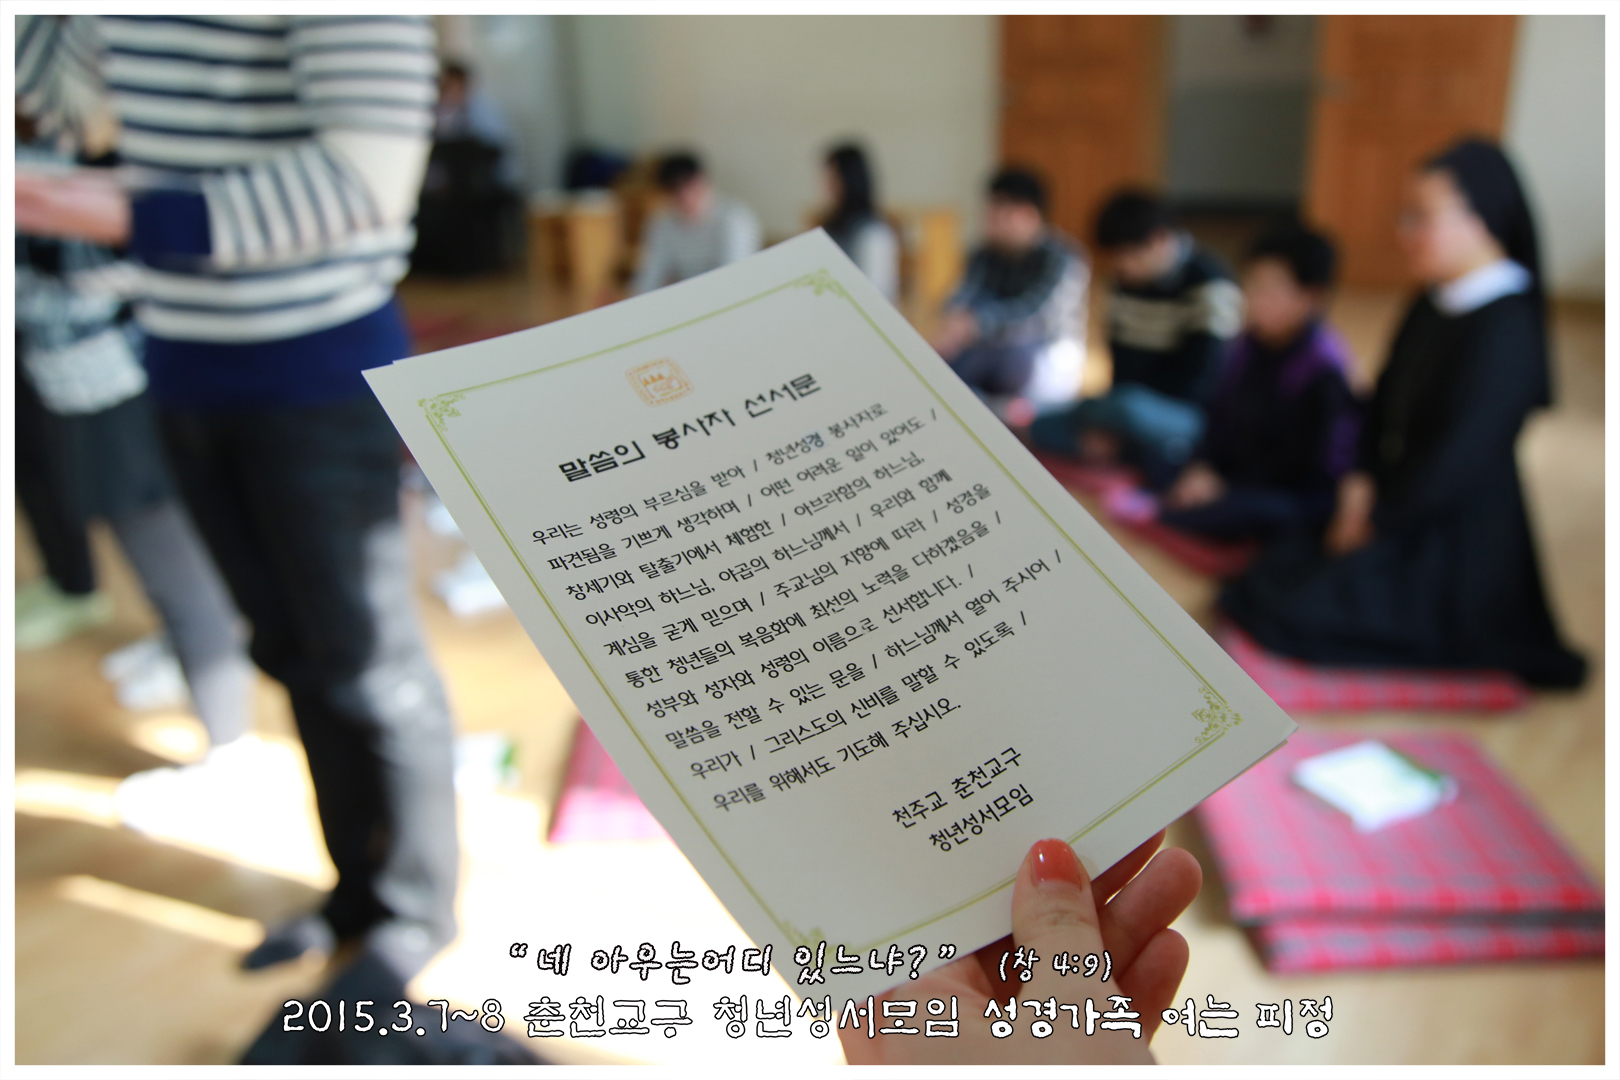 말씀의 봉사자 선서문
우리는 성령의 부르심을 받아 / 청년성경 봉사자로
파견됨을 기쁘게 생각하며 / 어떤 어려운 일이 있어도 /
창세기와 탈출기에서 체험한 / 아브라함의 하느님,
이사악의 하느님, 야곱의 하느님께서 / 우리와 함께
계심을 굳게 믿으며 / 주교님의 지향에 따라 / 성경을
통한 청년들의 복음화에 최선의 노력을 다하겠음을 /
성부와 성자와 성령의 이름으로 선서합니다. /
말씀을 전할 수 있는 문을 / 하느님께서 열어 주시어 /
우리가 / 그리스도의 신비를 말할 수 있도록 /
우리를 위해서도 기도해 주십시오.
천주교 춘천교구
청년성서모임
“네 아우는어디 있느냐?” (창 4:9)
2015.3.7~8 춘천교구 청년성서모임 성경가족 여는 피정